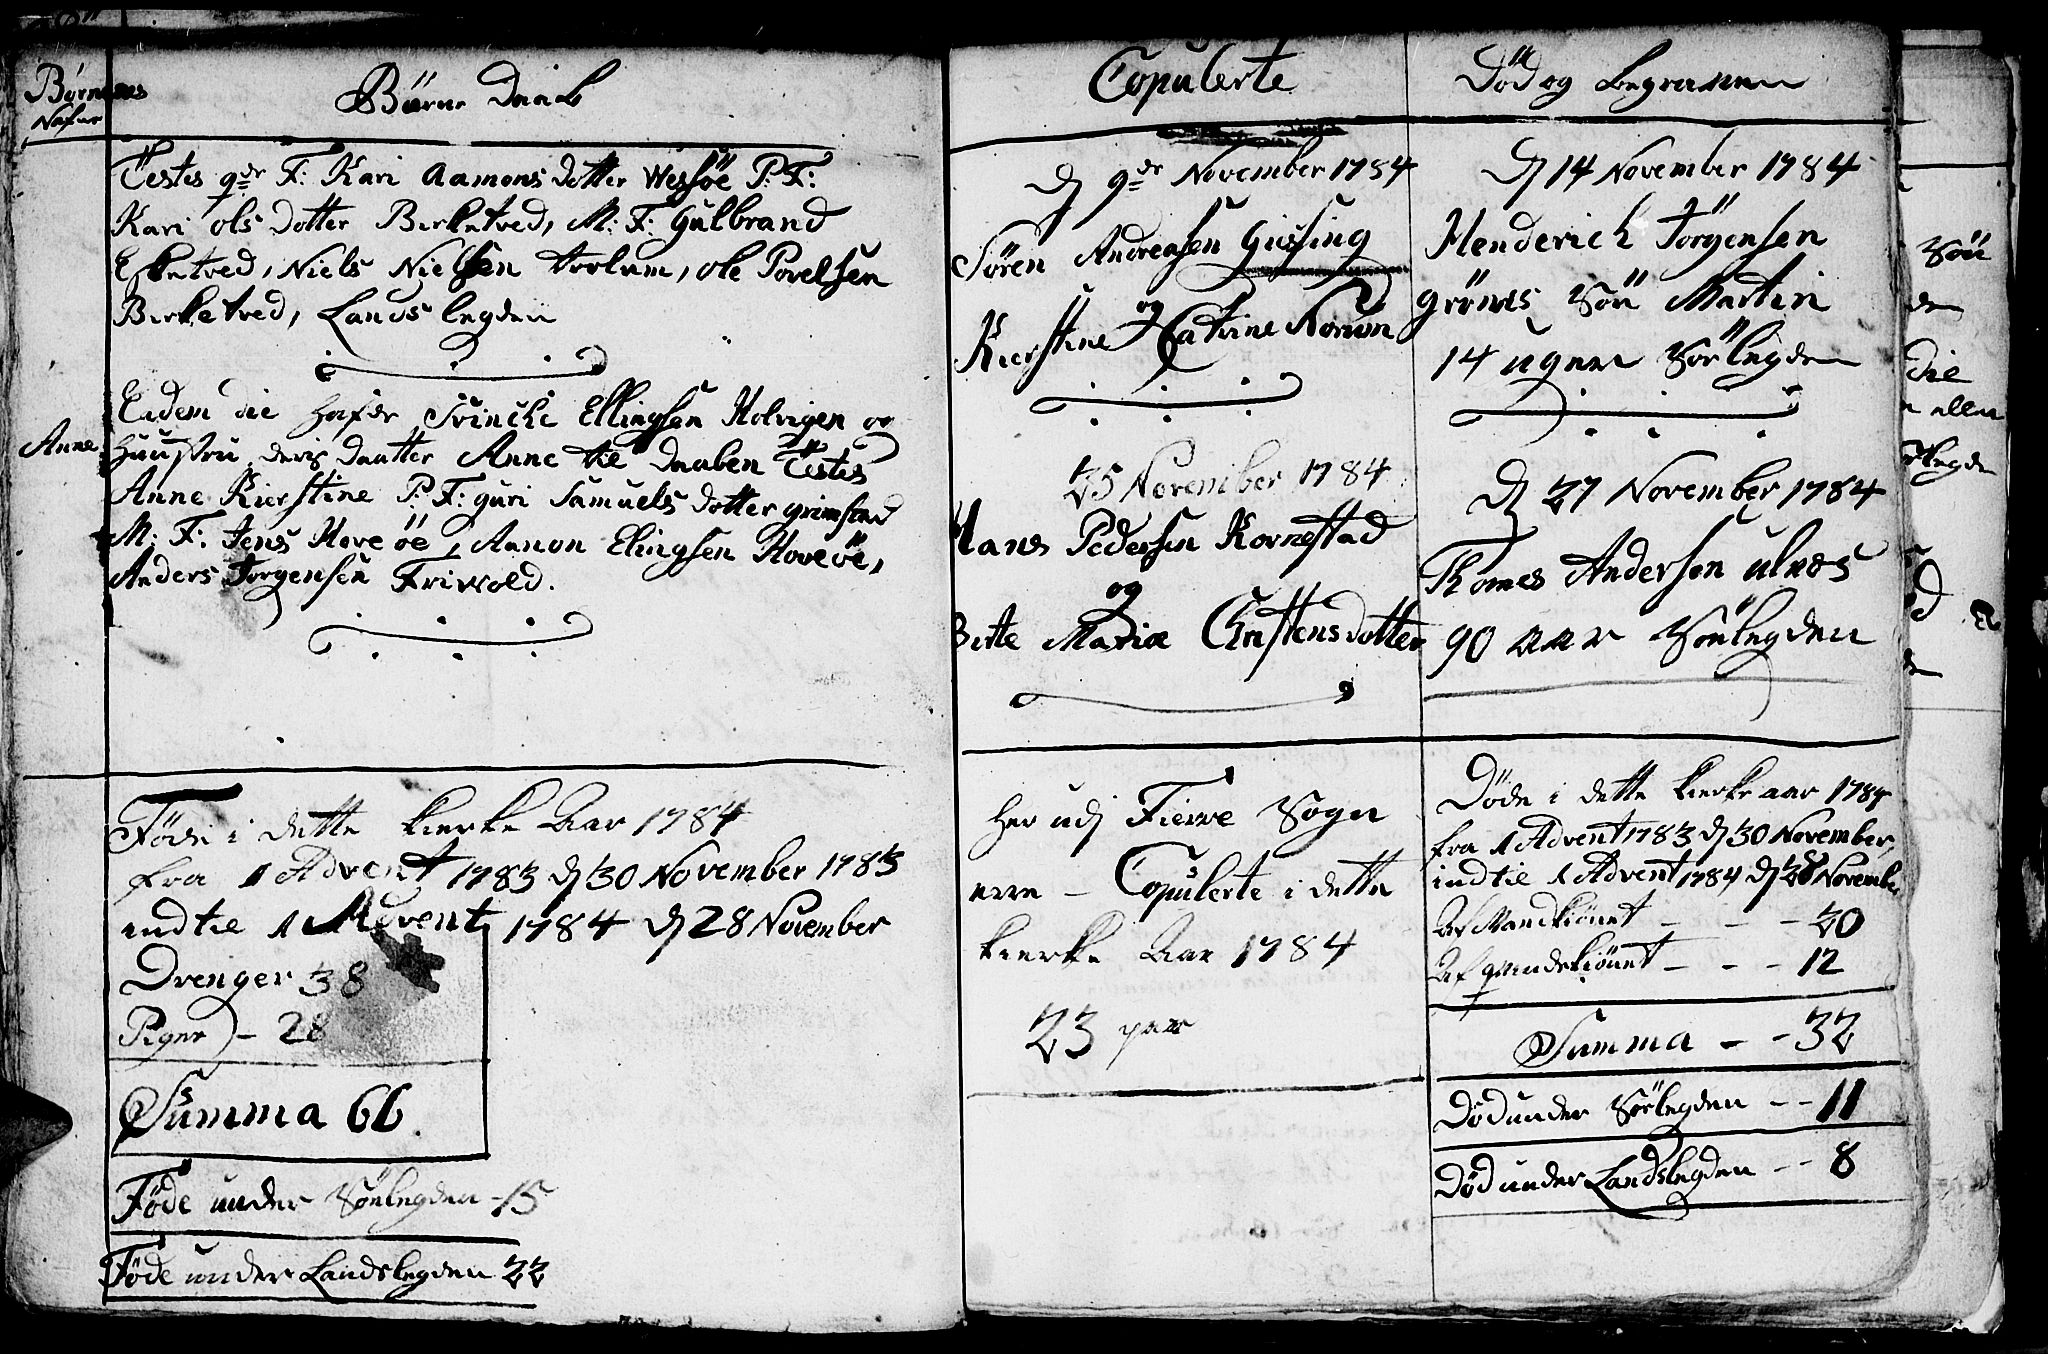 Børnenes
Nafne
Børne Daab
Testes qdr F: Kari Aamons dotter Wessøe P: F:
Kari ols dotter Birketved, M: F: Gulbrand
Esketved, Niels Nielsen, ole Povelsen
Birketved, Lands legden
Anne
Eadem die hafde Ellingsen Holvigen og
Huustru deris daatter Anne til daaben Testes
Anne Kierstine P: F: guri Samuels dotter grimstad
M: F: Jens Hove öe, Aanon Elingsen Hoveöe,
Anders Jörgensen Friwold.
Föde i dette kierke Aar 1784
fra 1 Advent 1783 d 30 November 1783
indtil 1 Advent 1784 d 28 November
Drenger 38
Piger - 28
Summa 66.
Föde under Sörlegden - 15
Föde under Landslegden 22
Copulerte
d 9de November 1784
Sören Andreasen Giessing
og
Kierstine Catrine Norum
25 November 1784
Hans Pedersen Kornestad
og
Birte Maria Christens dotter
her udj Fierre Sogn
ere - Copulerte i dette
kierke Aar 1784
23 par
Död og begravne
d 14 November 1784
Henderich Jörgensen
grönes Sön Martin
14 uger Sörlegden
d 27 November 1784
Thomes Andersen ulnes
90 aar Sörlegden
Döde i dette kierke aar 1784
fra 1 Advent 1783 d 30 November,
indtil 1 Advent 1784 d 28 Novembe
Af Mandkiönet - - - 20
Af qvindekiönet - - - 12
Summa - - 32
Död under Sörlegden - - 11
Död under Landslegden - - 8
Sön
die